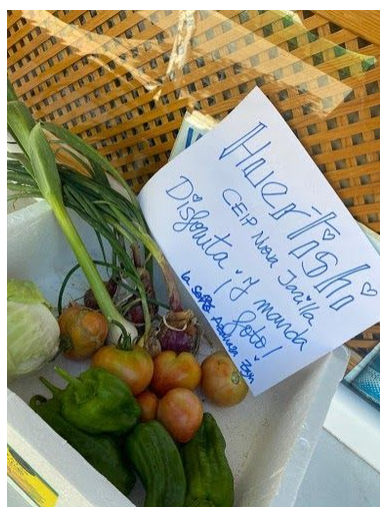 HuerTishi
CEIP Nova Jarilla
Disfruta ¡Y manda
foto!
la Seño